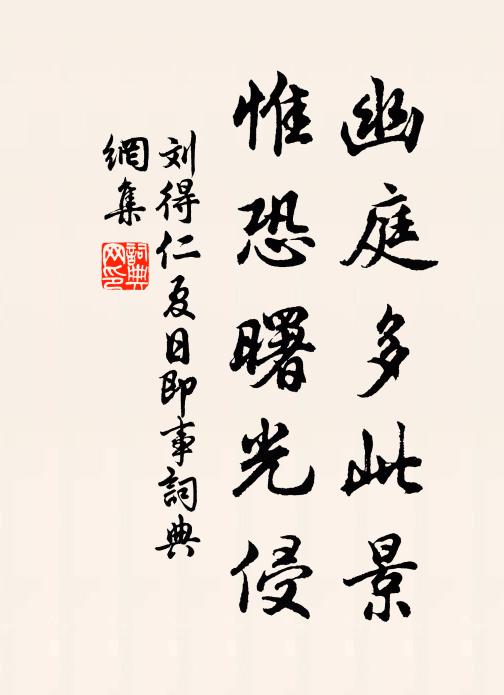 幽庭多此景
惟恐曙光侵
刘得仁夏日即事詞典
網集
詞典网印